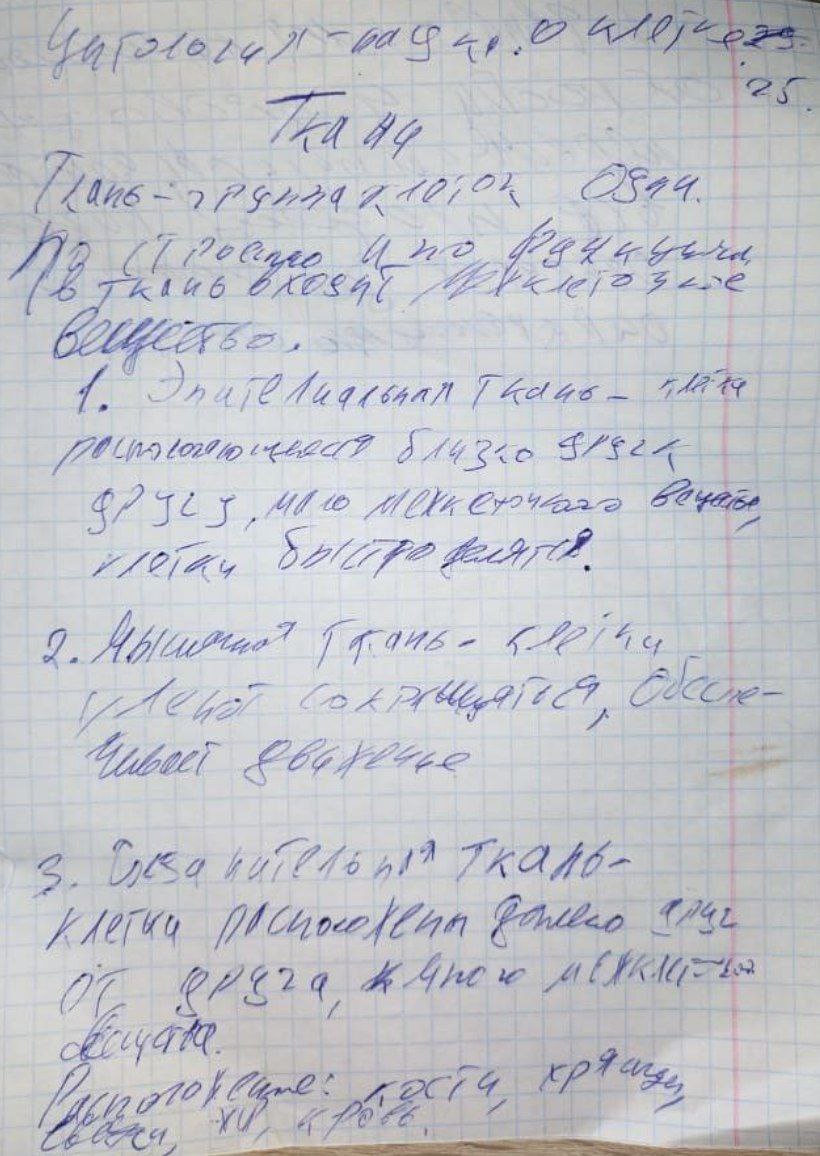 Цитология - наука о клетке.
25.
Ткани
Ткань - группа клеток Один.
По строению и по функциям,
(в ткань входит межклеточное
вещество.
1. Эпителиальная ткань - клетки
располагающиеся близко друг к
другу, мало межклеточного вещества,
клетки быстро делятся.
2. Мышечная ткань - клетки
умеют сокращаться, Обеспе-
чивает движение
3. ткань-
клетки расположены далеко друг
от друга, много межклеточ.
вещества.
Расположение: кости, хрящи,
связки, кровь.